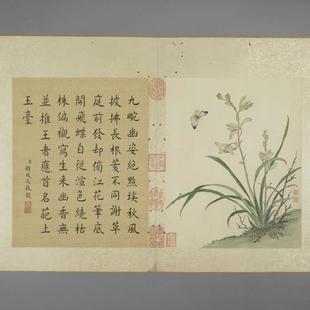 九畹幽姿絕點埃秋風
披拂長根荄不同謝草
庭前發却傍江花筆底
開飛蝶自從渲色繞枯
株偏襯寫生來幽香無
並推王者應首名葩上
玉臺